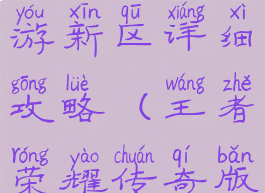 yóu xīn qū xiáng xì
游新区详细
gōng lüè wáng zhě
攻略（王者
róng yào chuán qí bǎn
荣耀传奇版